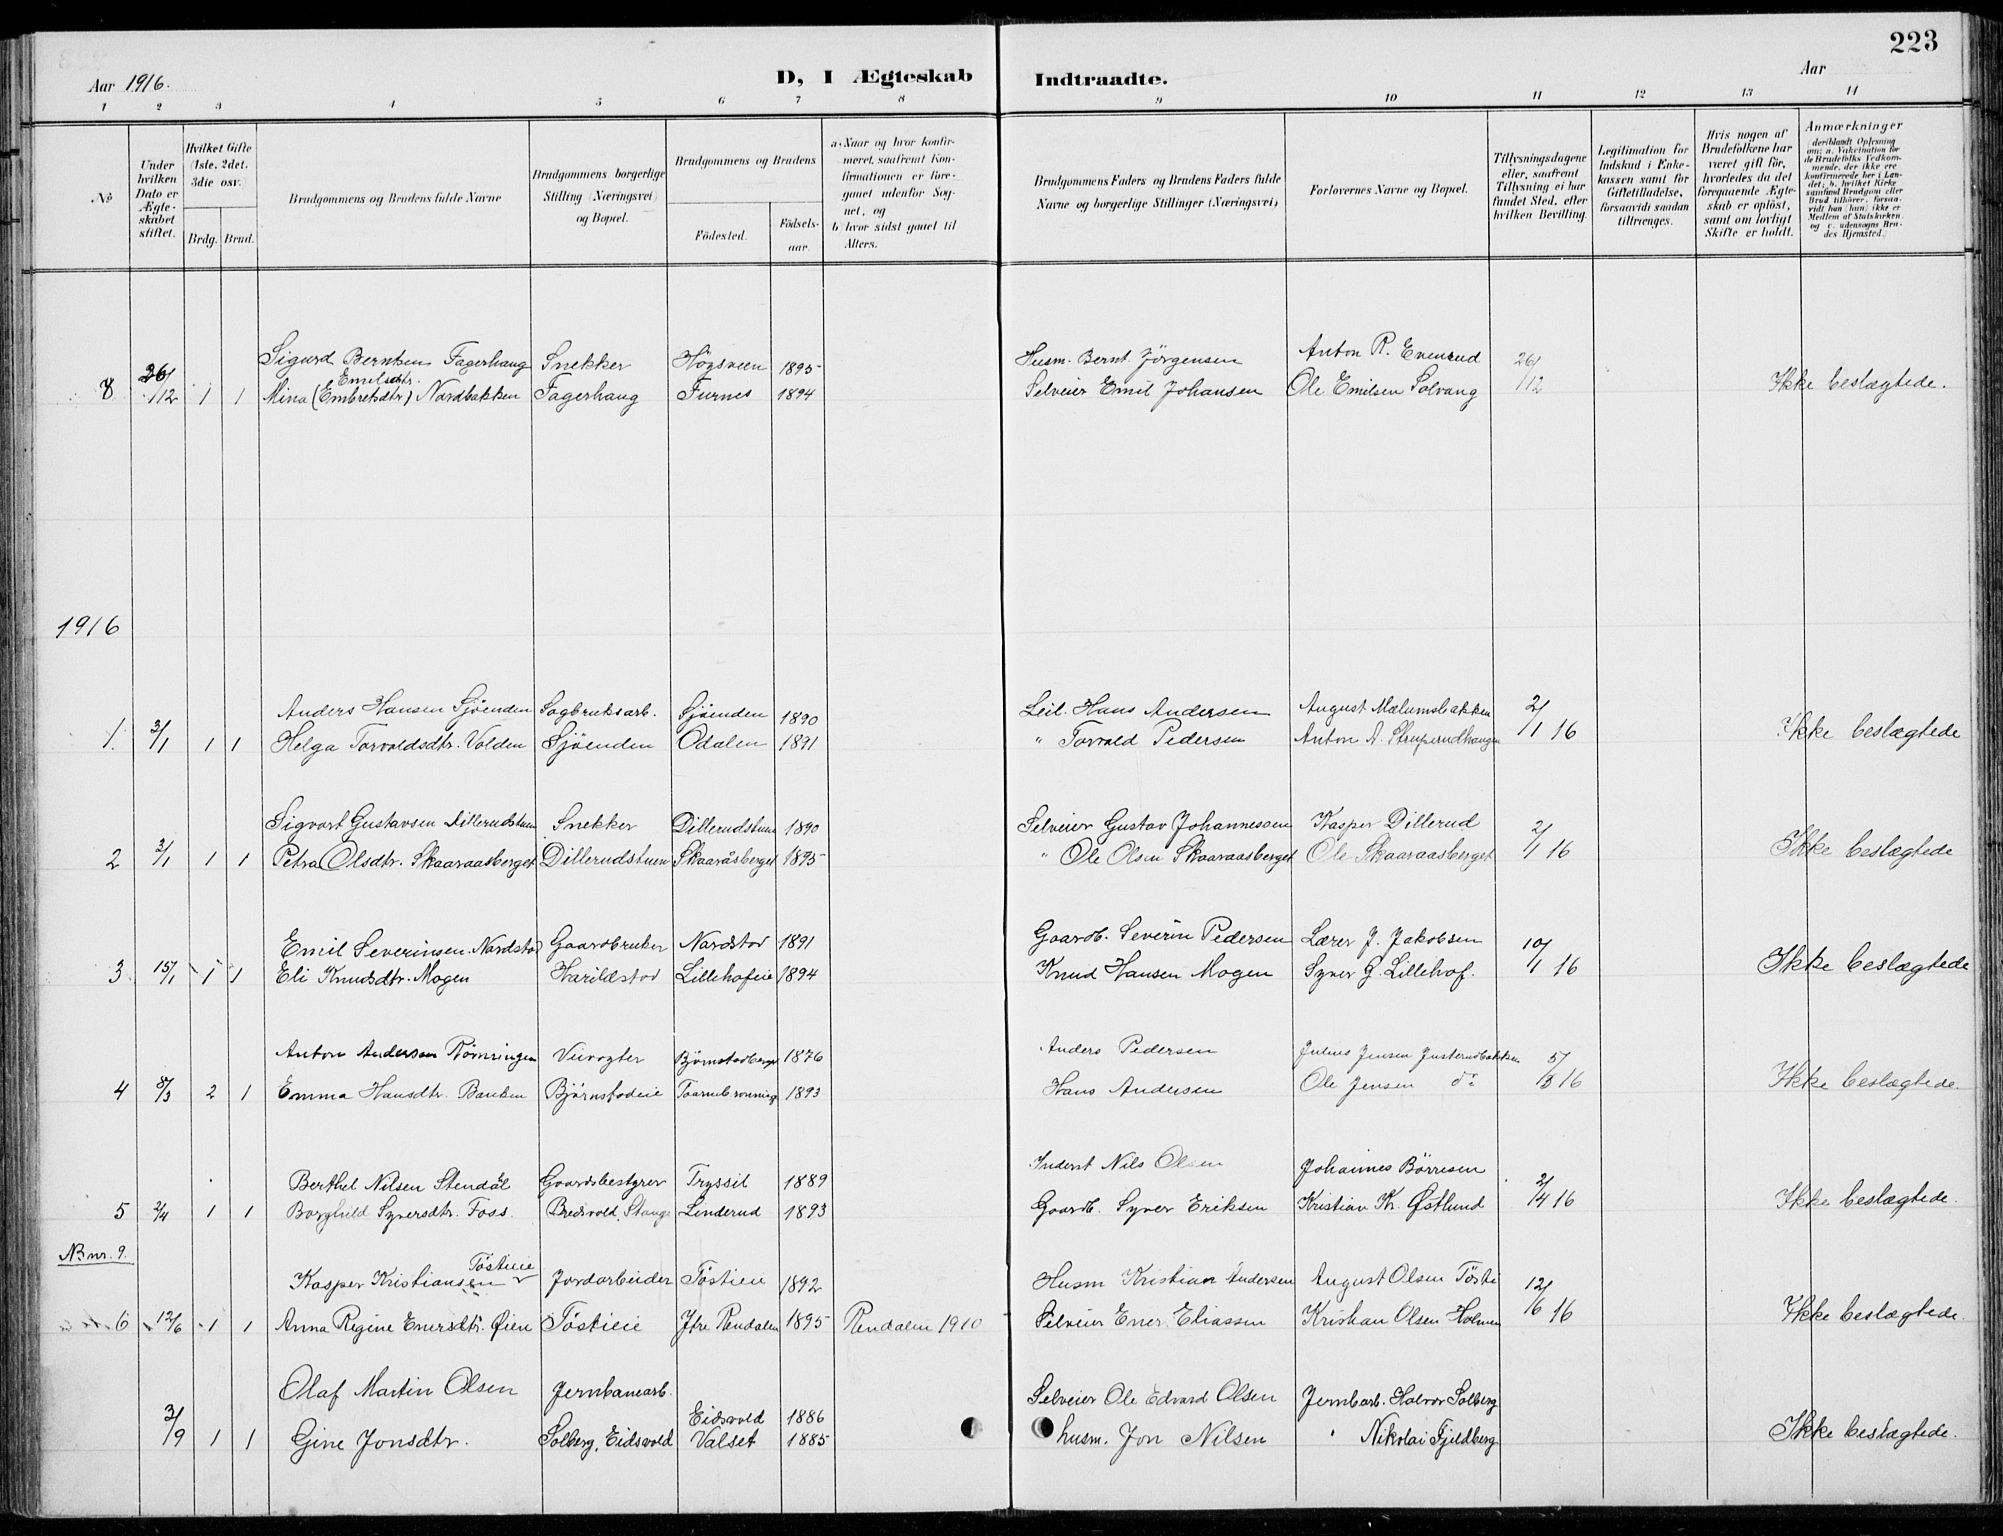 223
Aar 1916.
D, I Ægteskab Indtraadte.
Aar
1 2 3 4 5 6 7 8 9 10 11 12 13 14
No
Under hvilken Dato er Ægteskabet stiftet.
Hvilket Gifte (1ste, 2det, 3die osv.)
Brdg. Brud.
Brudgommens og Brudens fulde Navne
Brudgommens borgerlige Stilling (Næringsvei) og Bopæl.
Brudgommens og Brudens
Fødested.
Fødselsaar.
a) Naar og hvor konfirmeret, saafremt Konfirmationen er foregaaet udenfor Sognet, og
b) hvor sidst gaaet til Alters.
Brudgommens Faders og Brudens Faders fulde Navne og borgerlige Stillinger (Næringsvei)
Forlovernes Navne og Bopæl.
Tillysningsdagene eller, saafremt Tillysning ei har fundet Sted, efter hvilken Bevilling.
Legitimation for Indskud i Enkekassen samt for Giftetilladelse, forsaavidt saadan tiltrænges.
Hvis nogen af Brudefolkene har været gift før, hvorledes da det foregaaende Ægteskab er opløst, samt om lovligt Skifte er holdt.
Anmærkninger (deriblandt Oplysning om: a. Vakcination for de Brudefolks Vedkommende, der ikke ere konfirmerede her i Landet; b. hvilket Kirkesamfund Brudgom eller Brud tilhører, forsaavidt han (hun) ikke er Medlem af Statskirken, og c. udensogns Brudes Hjemsted.)
Sigurd Berntsen Fagerhaug Snekker Høgsveen 1895 Husm. Bernt Jörgensen Anton R. Evenrud 26/
Emilsdtr.
8 26/12 1 1 Mina (Embretsdtr) Nordbakken Fagerhaug Furnes 1894 Selveier Emil Johansen Ole Emilsen Solvang 12 Ikke beslægtede.
1916
Anders Hansen Sjøenden Sagbruksarb. Sjøenden 1890 Leil. Hans Andersen August Mælumsbakken 2/
1. 3/1 1 1 Helga Torvaldsdtr. Volden Sjøenden Odalen 1891 " Torvald Pedersen Anton A. Struperudhaugen 1 16 Ikke beslægtede
Sigvart Gustavsen Dillerudstuen Snekker Dillerudstuen 1890 Selveier Gustav Johannessen Kasper Dillerud 2/
2 3/1 1 1 Petra Olsdtr. Skaaraasberget Dillerudstuen Skaaråsberget 1895 " Ole Olsen Skaaraasberget Ole Skaaraasberget 1 16 Ikke beslægtede
Emil Severinsen Nordstod Gaardbruker Nordstod 1891 Gaardb. Severin Pedersen Lærer J. Jakobsen 10/
3 15/1 1 1 Eli Knudsdtr. Mogen Harildstod Lillehofeie 1894 Knud Hansen Mogen Syver G. Lillehof. 1 16 Ikke beslægtede
Anton Andersen Veivogter 1876 Anders Pedersen Julius Jensen 5/
4 8/3 2 1 Emma Hansdtr. Banken Bjørnstodeie 1893 Hans Andersen Ole Jensen do 3 16 Ikke beslægtede.
Berthel Nilsen Stendal Gaardsbestyrer Tryssil 1889 Inderst Nils Olsen Johannes Börresen 2/
5 2/4 1 1 Borghild Syversdtr. Foss. Stange Linderud 1893 Gaardb. Syver Eriksen Kristian Kr. Østlund 4 16 Ikke beslægtede.
NB nr. 9.
Töstieie
Kasper Kristiansen Jordarbeider Töstieie 1892 Husm Kristian Andersen August Olsen Tösti 12/
6 12/6 1 1 Anna Regine Enersdtr. Øien Töstieie Ytre Rendalen 1895 Rendalen 1910 Selveier Ener Eliassen Kristian Olsen Holmen 6 16 Ikke beslægtede.
Olaf Martin Olsen Jernbanearb. Eidsvold 1886 Selveier Ole Edvard Olsen Jernbarb. Halvor Solberg
3/9 1 1 Gine Jonsdtr. Solberg, Eidsvold Valset 1885 husm. Jon Nilsen " Nikolai Fjeldberg Ikke beslægtede.